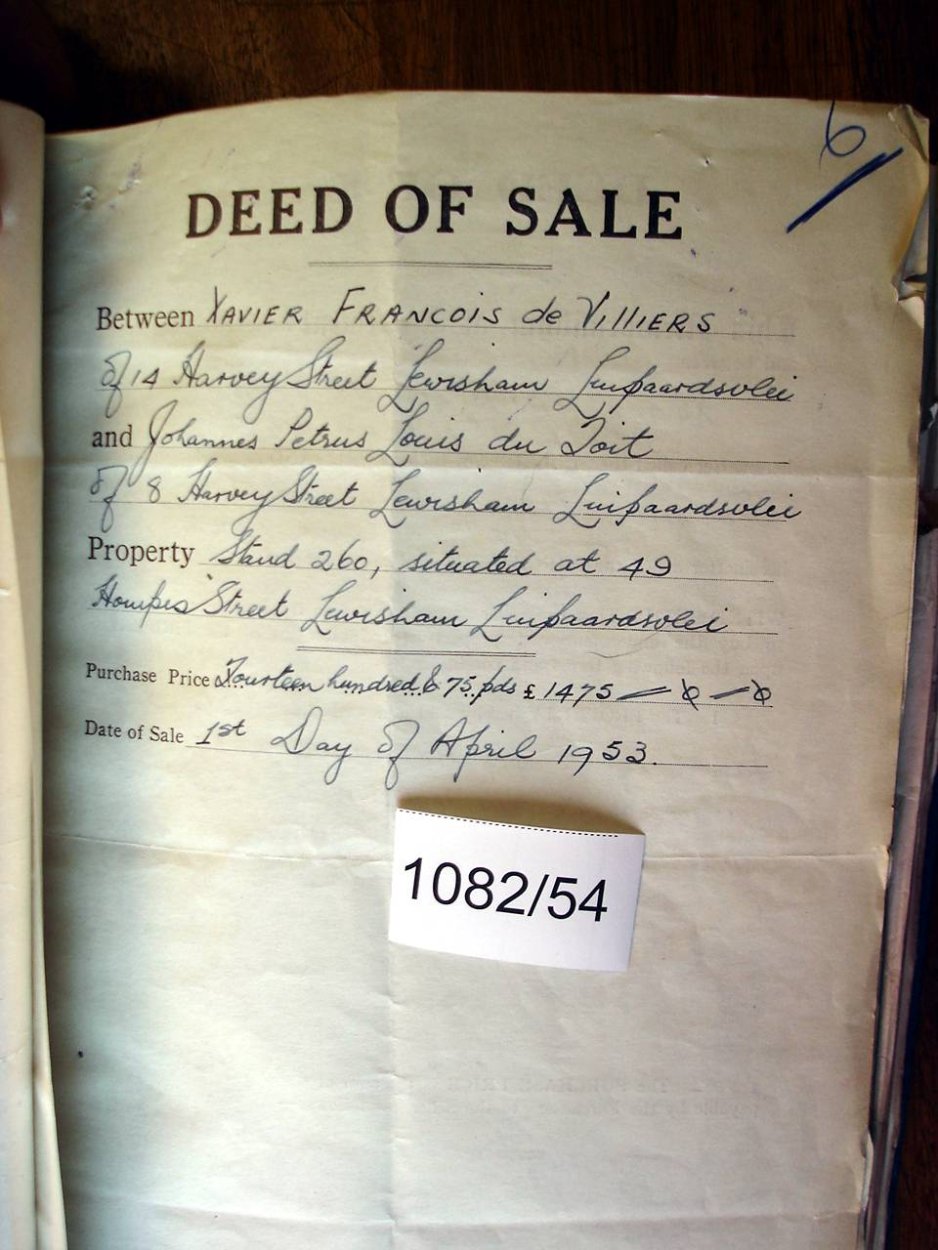 6
DEED OF SALE
Between XAVIER FRANCOIS de VILLIERS
of 14 Harvey Street Lewisham Luipaardsvlei
and Johannes Petrus Louis du Toit
of 8 Harvey Street Lewisham Luipaardsvlei
Property Stand 260, situated at 49
Street Lewisham Luipaardsvlei
Purchase Price Fourteen hundred & 75 pds £1475 — 0 — 0
Date of Sale 1st Day of April 1953.
1082/54